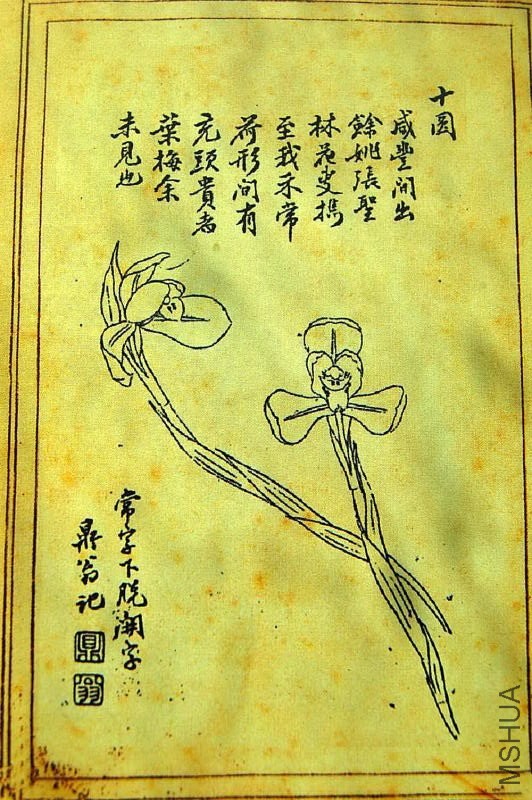 十圆
咸豐間出
餘姚張聖
林花叟携
至我禾常
荷形間有
充頭貴者
葉梅余
未見也
常字下脱開字
鼎翁记
鼎
翁
MSHUA